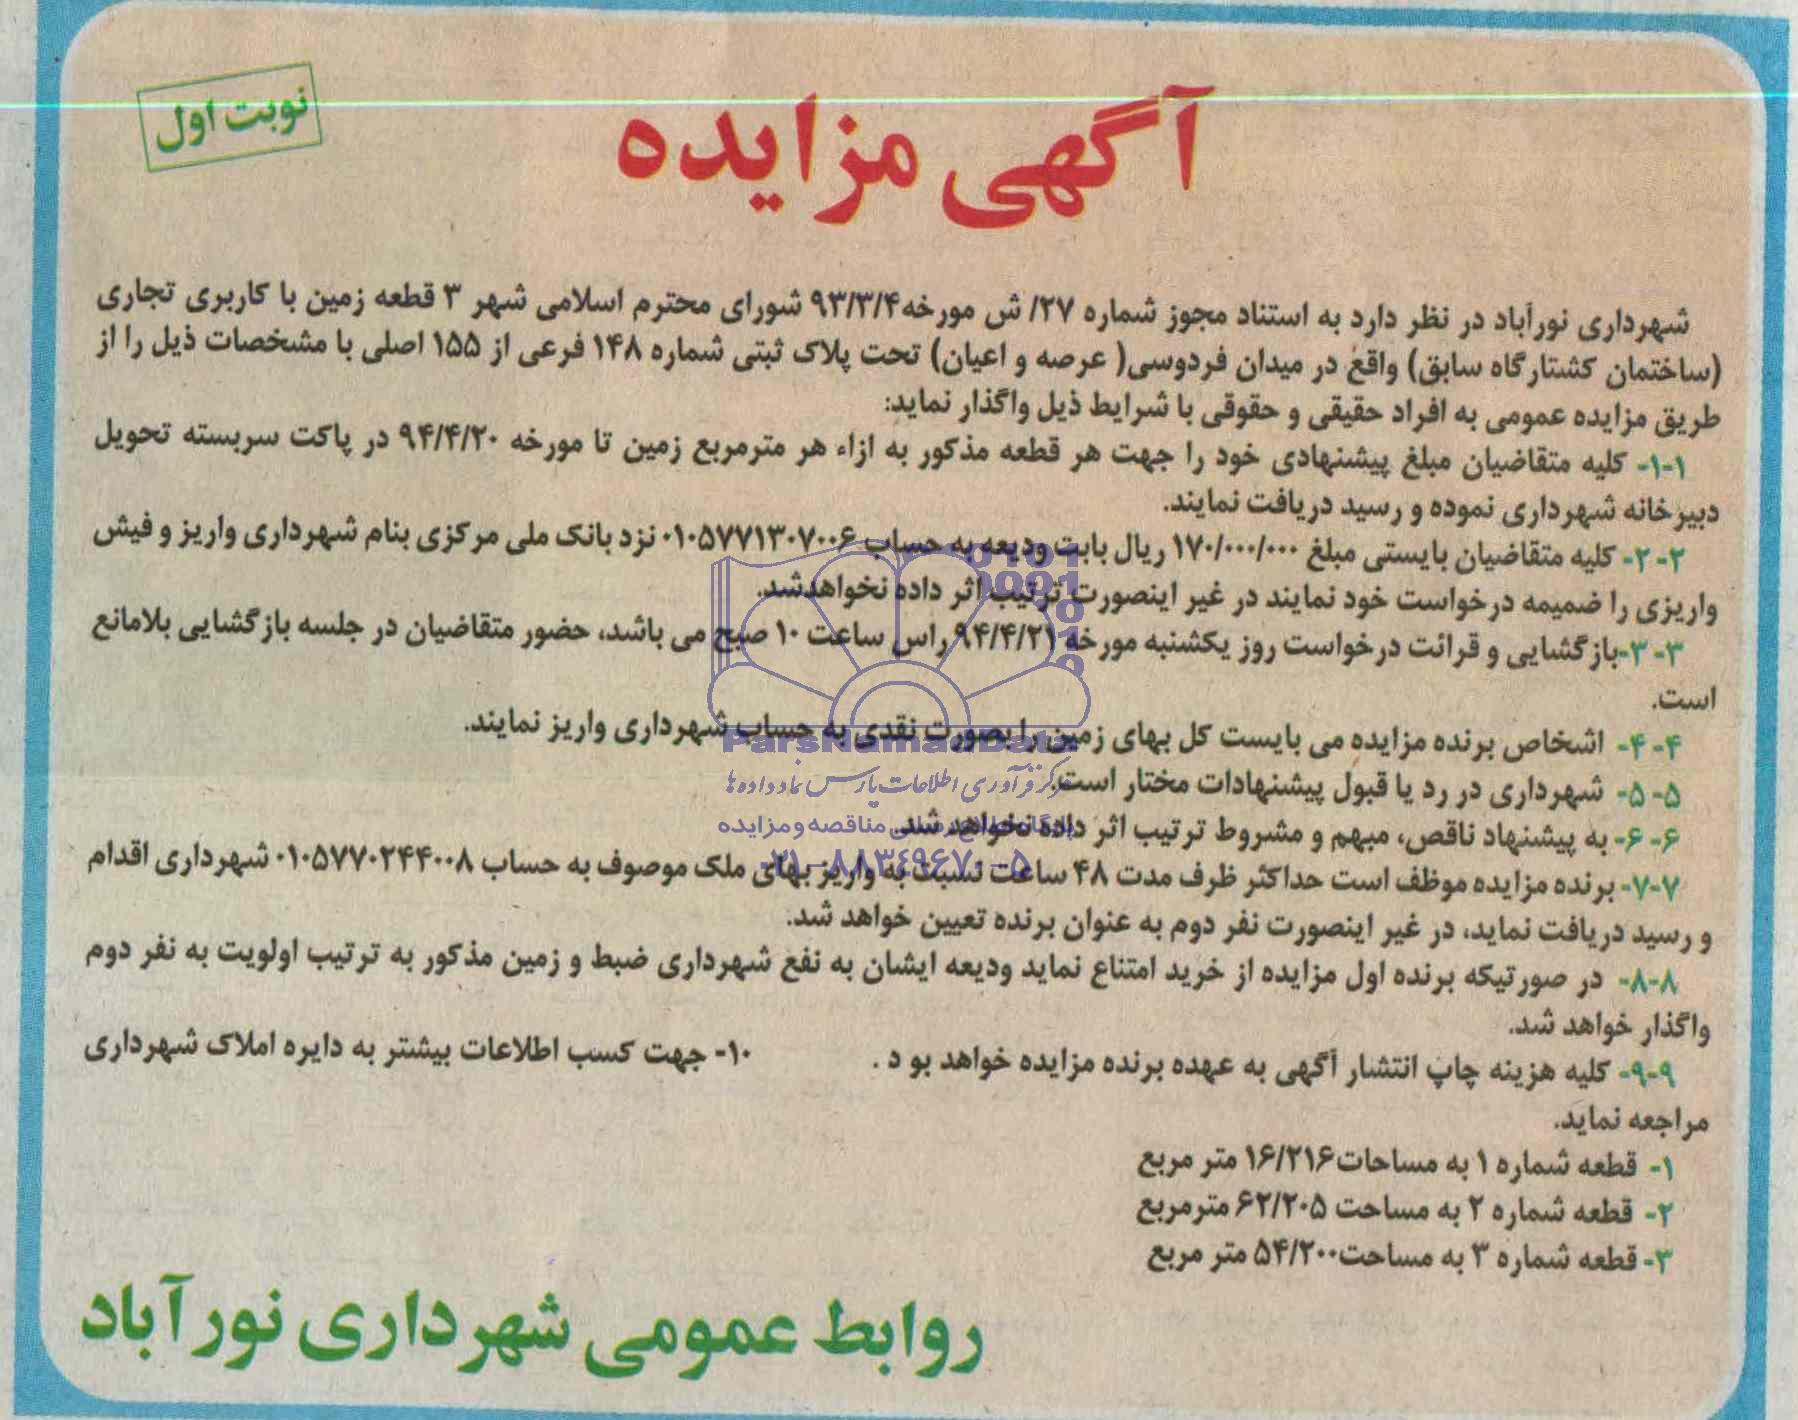 نوبت اول
آگهی مزایده
شهرداری نورآباد در نظر دارد به استناد مجوز شماره ۲۷/ ش مورخه ۹۳/۳/۴ شورای محترم اسلامی شهر ۳ قطعه زمین با کاربری تجاری
(ساختمان کشتارگاه سابق) واقع در میدان فردوسی( عرصه و اعیان) تحت پلاک ثبتی شماره ۱۴۸ فرعی از ۱۵۵ اصلی با مشخصات ذیل را از
طریق مزایده عمومی به افراد حقیقی و حقوقی با شرایط ذیل واگذار نماید:
۱-۱- کلیه متقاضیان مبلغ پیشنهادی خود را جهت هر قطعه مذکور به ازاء هر مترمربع زمین تا مورخه ۹۴/۴/۲۰ در پاکت سربسته تحویل
دبیرخانه شهرداری نموده و رسید دریافت نمایند.
۲-۲- کلیه متقاضیان بایستی مبلغ ۱۷۰/۰۰۰/۰۰۰ ریال بابت ودیعه به حساب ۰۱۰۵۷۷۱۳۰۷۰۰۶ نزد بانک ملی مرکزی بنام شهرداری واریز و فیش
واریزی را ضمیمه درخواست خود نمایند در غیر اینصورت ترتیب اثر داده نخواهدشد.
۳-۳-بازگشایی و قرائت درخواست روز یکشنبه مورخه ۹۴/۴/۲۱ راس ساعت ۱۰ صبح می باشد، حضور متقاضیان در جلسه بازگشایی بلامانع
است.
۴-۴- اشخاص برنده مزایده می بایست کل بهای زمین را بصورت نقدی به حساب شهرداری واریز نمایند.
ParsNamadData
مرکز فرآوری اطلاعات پارس نماد داده ها
۵-۵- شهرداری در رد یا قبول پیشنهادات مختار است.
مناقصه و مزایده
۶-۶- به پیشنهاد ناقص، مبهم و مشروط ترتیب اثر داده نخواهد شد.
۰۲۱-۸۸۳۴۹۶۷۰-۵
۷-۷- برنده مزایده موظف است حداکثر ظرف مدت ۴۸ ساعت نسبت به واریز بهای ملک موصوف به حساب ۰۱۰۵۷۷۰۲۴۴۰۰۸ شهرداری اقدام
و رسید دریافت نماید، در غیر اینصورت نفر دوم به عنوان برنده تعیین خواهد شد.
۸-۸- در صورتیکه برنده اول مزایده از خرید امتناع نماید ودیعه ایشان به نفع شهرداری ضبط و زمین مذکور به ترتیب اولویت به نفر دوم
واگذار خواهد شد.
۹-۹- کلیه هزینه چاپ انتشار آگهی به عهده برنده مزایده خواهد بو د . ۱۰- جهت کسب اطلاعات بیشتر به دایره املاک شهرداری
مراجعه نماید.
۱- قطعه شماره ۱ به مساحات۱۶/۲۱۶ متر مربع
۲- قطعه شماره ۲ به مساحت ۶۲/۲۰۵ مترمربع
۳- قطعه شماره ۳ به مساحت۵۴/۲۰۰ متر مربع
روابط عمومی شهرداری نورآباد